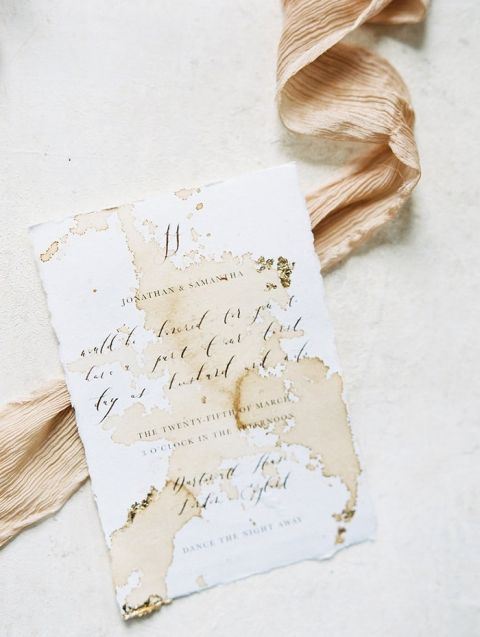 JONATHAN & SAMANTHA
would be honored for you to
have a part of our first
day as husband and wife
THE TWENTY-FIFTH OF MARCH
3 O'CLOCK IN THE AFTERNOON
House
London, England
DANCE THE NIGHT AWAY